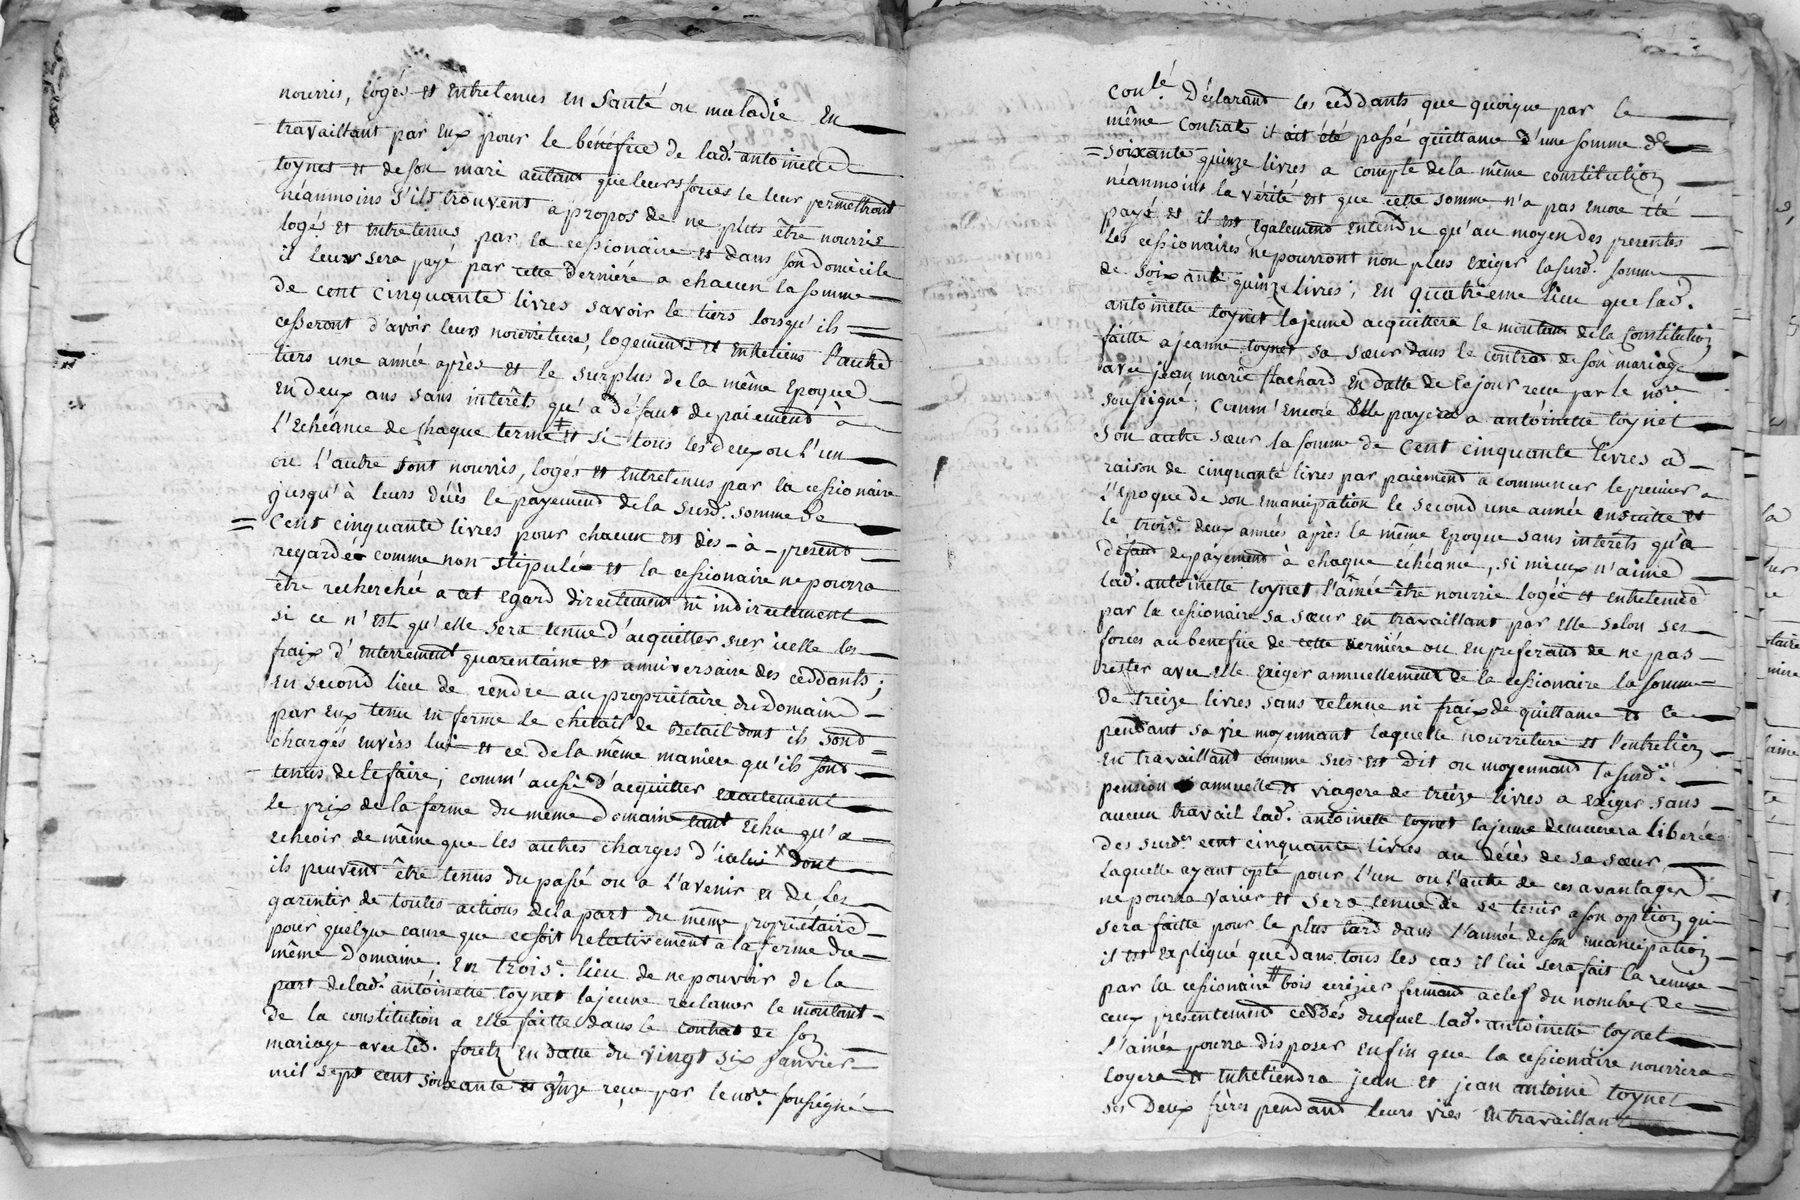 nourris, logés et entretenus en santé ou maladie en
travaillant par eux pour le bénéfice de lad. antoinette
toynet et de son mari autant que leurs forces le leur permettront
néanmoins s'ils trouvent a propos de ne plus être nourris
logés et entretenus par la cessionaire et dans son domicile
il leur sera payé par cette derniére a chacun la somme
de cent cinquante livres savoir le tiers lorsqu'ils
cesseront d'avoir leurs nourriture, logements et entretiens l'autre
tiers une année après et le surplus de la même epoque
en deux ans sans intérêts qu'a défaut de paiement à
l'echéance de chaque terme ‡ et si tous les deux ou l'un
ou l'autre sont nourris, logés et entretenus par la cessionaire
jusqu'à leurs décès le payement de la surd. somme de
= cent cinquante livres pour chacun est dès-à-present
regardée comme non stipulée et la cessionaire ne pourra
être recherchée a cet egard directement ni indirectement
si ce n'est qu'elle sera tenue d'acquitter sur icelle les
fraix d'enterrement quarentaine et anniversaire des ceddants;
en second lieu de rendre au propriétaire du domaine
par eux tenu en ferme le chetals de betail dont ils sont
chargés envèrs lui et ce de la même maniére qu'ils sont
tenus de le faire; comm' aussi d'acquitter exactement
le prix de la ferme du meme domaine tant echu qu'a
echeoir de même que les autres charges d'icelui x dont
ils peuvent être tenus du passé ou a l'avenir et de les
garentir de toutes actions de la part du même propriétaire
pour quelque cause que ce soit relativement a la ferme du
même domaine. En trois.e lieu de ne pouvoir de la
part de lad. antóinette toynet la jeune reclamer le montant
de la constitution a elle faitte dans le contrat de son
mariage avec led. foretz en datte du vingt six janvier
mil sept cent soixante et onze reçu par le no.re soussigné
con.lé Déclarant les ceddants que quoique par le
même contrat il ait été passé quittance d'une somme de
= soixante quinze livres a compte de la même constitution
néanmoins la vérité est que cette somme n'a pas encore été
payé et il est également entendu qu'au moyen des presentes
les cessionaires ne pourront non plus exiger la surd. somme
de soixante quinze livres; en quatrieme lieu que lad.
antoinette toynet la jeune acquittera le montant de la constitution
faitte a jeanne toynet sa sœur dans le contrat de son mariage
avec jean marie flachard en datte de ce jour reçu par le no.re
soussigné; comm' encore elle payera a antoinette toynet
son autre sœur la somme de cent cinquante livres a
raison de cinquante livres par paiement a commencer le premier a
l'epoque de son emancipation le second une année ensuitte et
le trois.e deux années après la même epoque sans intérêts qu'a
défaut de payement à chaque échéance, si mieux n'aime
lad. antoinette toynet l'aînée être nourrie logée et entretenue
par la cessionaire sa sœur en travaillant par elle selon ses
forces au benefice de cette derniére ou en preferant de ne pas
rester avec elle exiger annuellement de la cessionaire la somme
de treize livres sans retenue ni fraix de quittance et ce
pendant sa vie moyennant laquelle nourriture et l'entretien
en travaillant comme sus est dit ou moyennant la surd.e
pension annuelle et viagere de treize livres a exiger sans
aucun travail lad. antoinette toynet la jeune demeurera liberée
des surd.es cent cinquante livres au décès de sa sœur
laquelle ayant opté pour l'un ou l'autre de ces avantages
ne pourra varier et sera tenue de se tenir a son option qui
sera faitte pour le plus tard dans l'année de son emancipation
il est expliqué que dans tous les cas il lui sera fait la remise
par la cessionaire # bois cerizier fermant a clef du nombre de
ceux presentement ceddés duquel lad. antoinette toynet
l'ainée pourra disposer enfin que la cessionaire nourrira
logera et entretiendra jean et jean antoine toynet
ses deux frères pendant leurs vies en travaillant